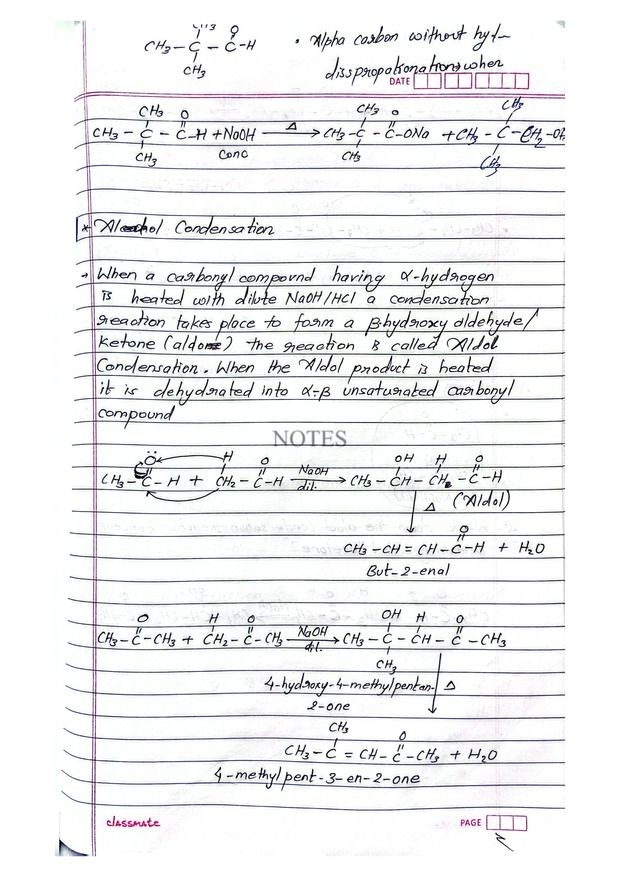 CH3
CH3 – C – C – H • Alpha carbon without hyd–
O
CH3 disspropotionation when
DATE
CH3 O CH3 O CH3
CH3 – C – C – H + NaOH Δ → CH3 – C – C – ONa + CH3 – C – CH2 – OH
CH3 Conc CH3 CH3
* Aldol Condensation
→ When a carbonyl compound having α-hydrogen
is heated with dilute NaOH/HCl a condensation
reaction takes place to form a β-hydroxy aldehyde/
Ketone (aldol) the reaction is called Aldol
Condensation. When the Aldol product is heated
it is dehydrated into α-β unsaturated carbonyl
compound
NOTES
O H O OH H O
CH3 – C – H + CH2 – C – H NaOH dil. → CH3 – CH – CH – C – H
Δ (Aldol)
O
CH3 – CH = CH – C – H + H2O
But-2-enal
O H O OH H O
CH3 – C – CH3 + CH2 – C – CH3 NaOH dil. → CH3 – C – CH – C – CH3
CH3
4-hydroxy-4-methylpentan- Δ
2-one
CH3 O
CH3 – C = CH – C – CH3 + H2O
4-methylpent-3-en-2-one
classmate PAGE